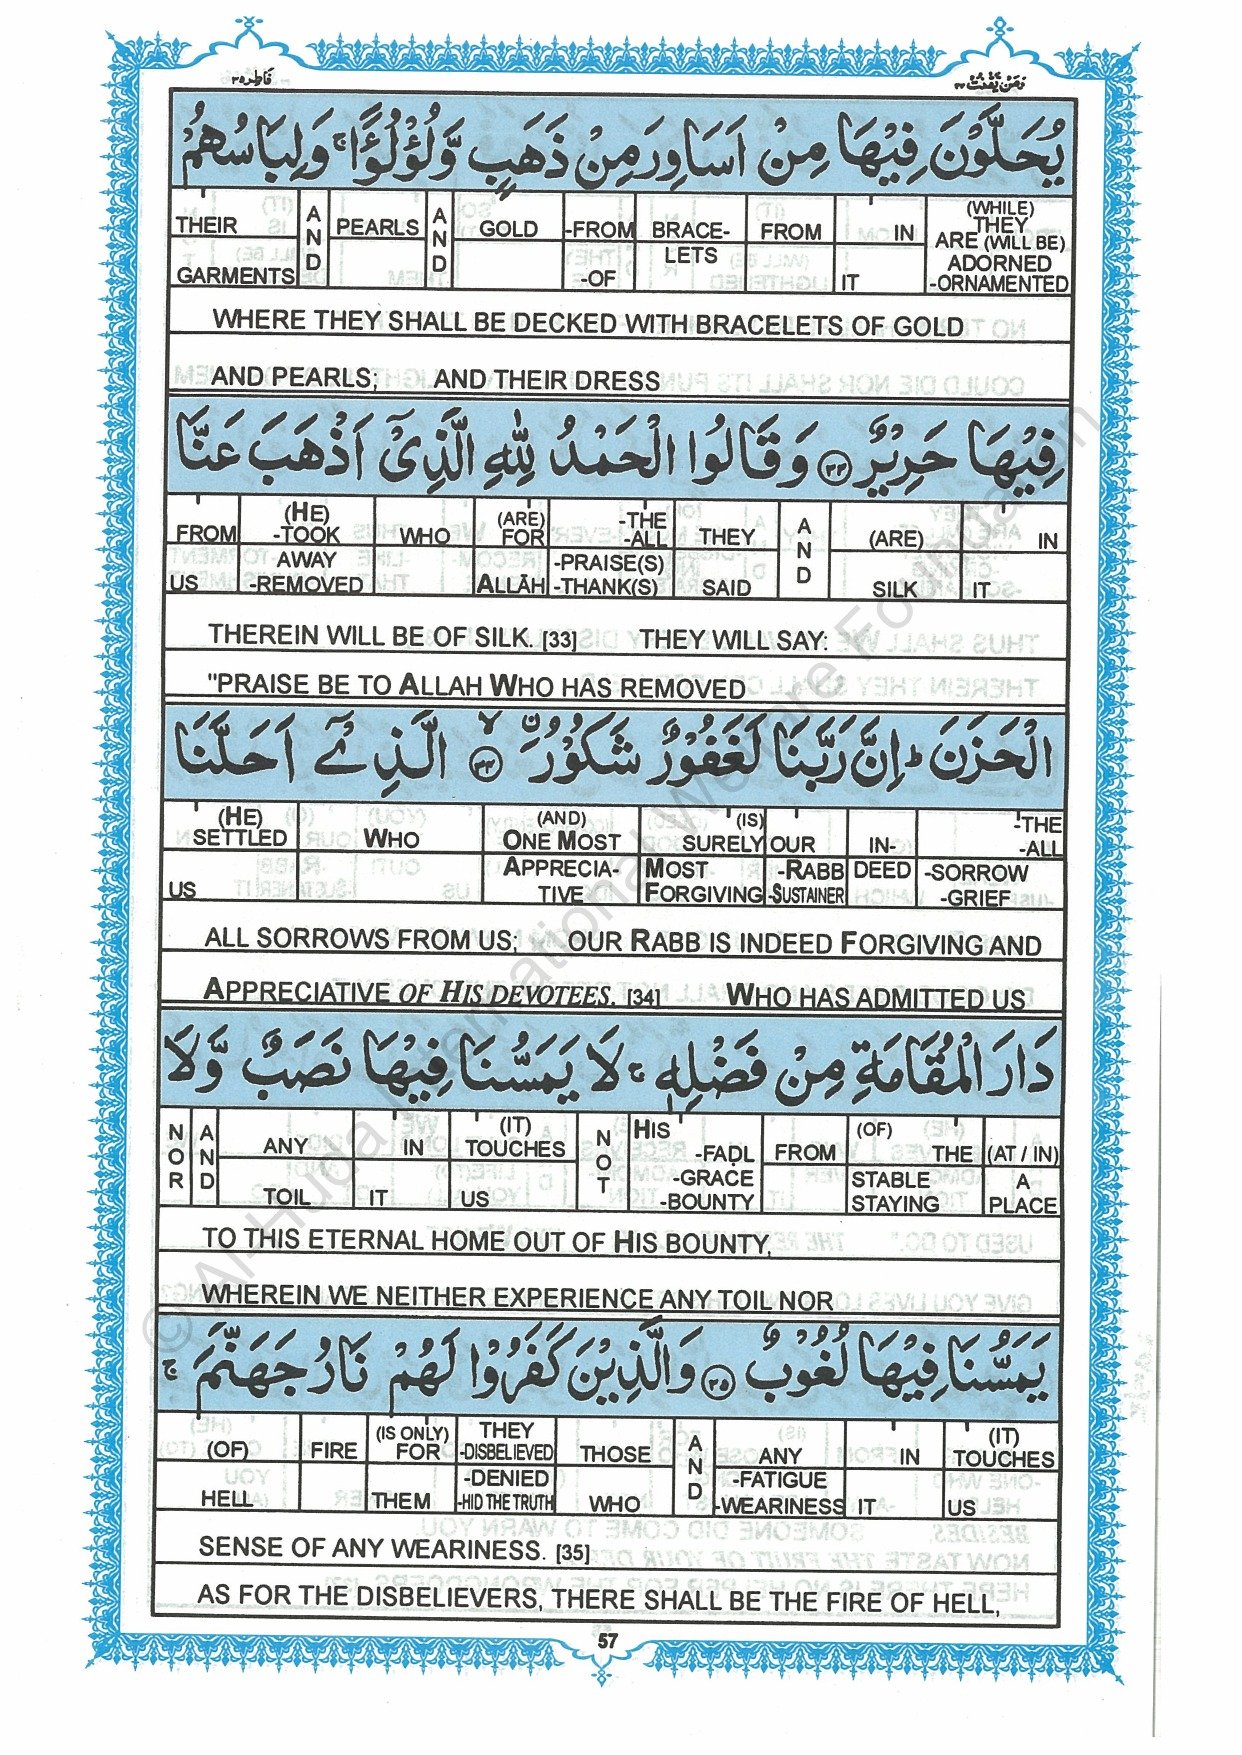 فَاطِر ٣٥
وَمَنْ يَّقْنُتْ ٢٢
يُحَلَّوْنَ فِيْهَا مِنْ اَسَاوِرَ مِنْ ذَهَبٍ وَّلُؤْلُؤًا ۚ وَلِبَاسُهُمْ
THEIR GARMENTS | AND | PEARLS | AND | GOLD | -FROM -OF | BRACE-LETS | FROM | IN IT | (WHILE) THEY ARE (WILL BE) ADORNED -ORNAMENTED
WHERE THEY SHALL BE DECKED WITH BRACELETS OF GOLD
AND PEARLS; AND THEIR DRESS
فِيْهَا حَرِيْرٌ ﴿۳۳﴾ وَقَالُوا الْحَمْدُ لِلّٰهِ الَّذِيْٓ اَذْهَبَ عَنَّا
FROM US | (HE) -TOOK AWAY -REMOVED | WHO | (ARE) FOR ALLĀH | -THE -ALL -PRAISE(S) -THANK(S) | THEY SAID | AND | (ARE) SILK | IN IT
THEREIN WILL BE OF SILK. [33] THEY WILL SAY:
"PRAISE BE TO ALLAH WHO HAS REMOVED
الْحَزَنَ ؕ اِنَّ رَبَّنَا لَغَفُوْرٌ شَكُوْرُ ۨ ﴿۳۴﴾ ۙ الَّذِيْٓ اَحَلَّنَا
(HE) SETTLED US | WHO | (AND) ONE MOST APPRECIA-TIVE | (IS) SURELY MOST FORGIVING | OUR -RABB -SUSTAINER | IN-DEED | -THE -ALL -SORROW -GRIEF
ALL SORROWS FROM US; OUR RABB IS INDEED FORGIVING AND
APPRECIATIVE OF HIS DEVOTEES. [34] WHO HAS ADMITTED US
دَارَ الْمُقَامَةِ مِنْ فَضْلِهٖ ۚ لَا يَمَسُّنَا فِيْهَا نَصَبٌ وَّلَا
NOR | AND | ANY TOIL | IN IT | (IT) TOUCHES US | NOT | HIS -FAḌL -GRACE -BOUNTY | FROM | (OF) THE STABLE STAYING | (AT / IN) A PLACE
TO THIS ETERNAL HOME OUT OF HIS BOUNTY,
WHEREIN WE NEITHER EXPERIENCE ANY TOIL NOR
يَمَسُّنَا فِيْهَا لُغُوْبٌ ﴿۳۵﴾ وَالَّذِيْنَ كَفَرُوْا لَهُمْ نَارُ جَهَنَّمَ ۚ
(OF) HELL | FIRE | (IS ONLY) FOR THEM | THEY -DISBELIEVED -DENIED -HID THE TRUTH | THOSE WHO | AND | ANY -FATIGUE -WEARINESS | IN IT | (IT) TOUCHES US
SENSE OF ANY WEARINESS. [35]
AS FOR THE DISBELIEVERS, THERE SHALL BE THE FIRE OF HELL,
57
© Al-Huda International Welfare Foundation